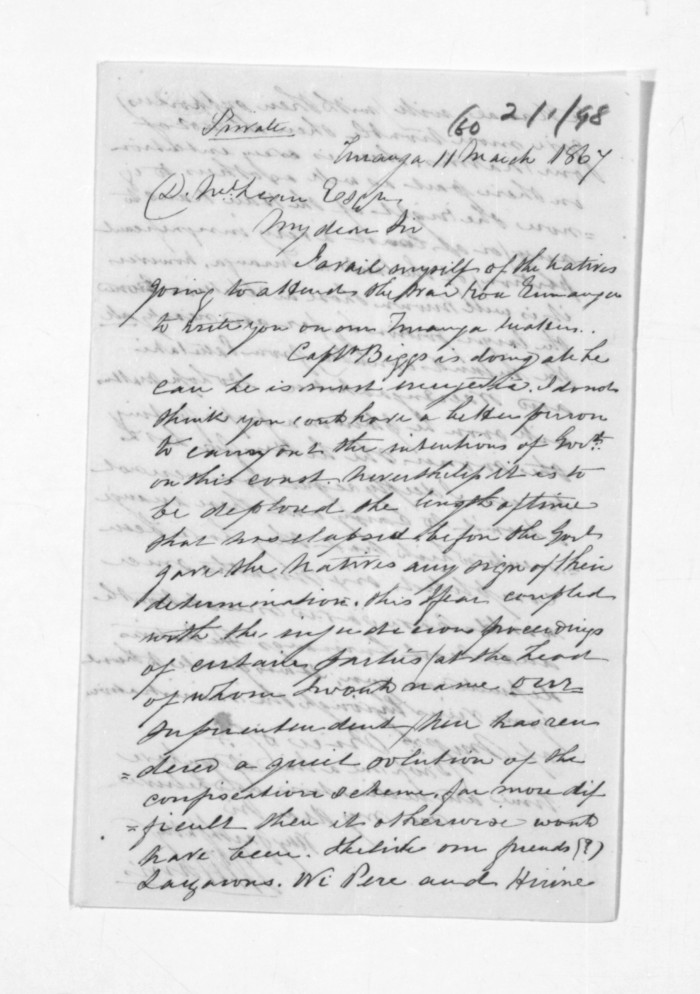 2/1/98
60
Private.
Turanga 11 March 1867
D. McLean Esqre.
My dear Sir
I avail myself of the Natives
going to attend the
to write you on our Turanga Matters.
Captn Biggs is doing all he
can he is most energetic. I do not
think you could have a better person
to carry out the intentions of Govt.
on this coast. it is to
be deplored the length of time
that has elapsed before the Govt
gave the Natives any sign of their
determination. this coupled
with the injudicious proceedings
of certain parties (at the head
of whom I would name our
Superintendent) has ren
=dered a quiet solution of the
confiscation scheme far more dif
=ficult then it otherwise would
have been. our friends (?)
Wi Pere and Hirine